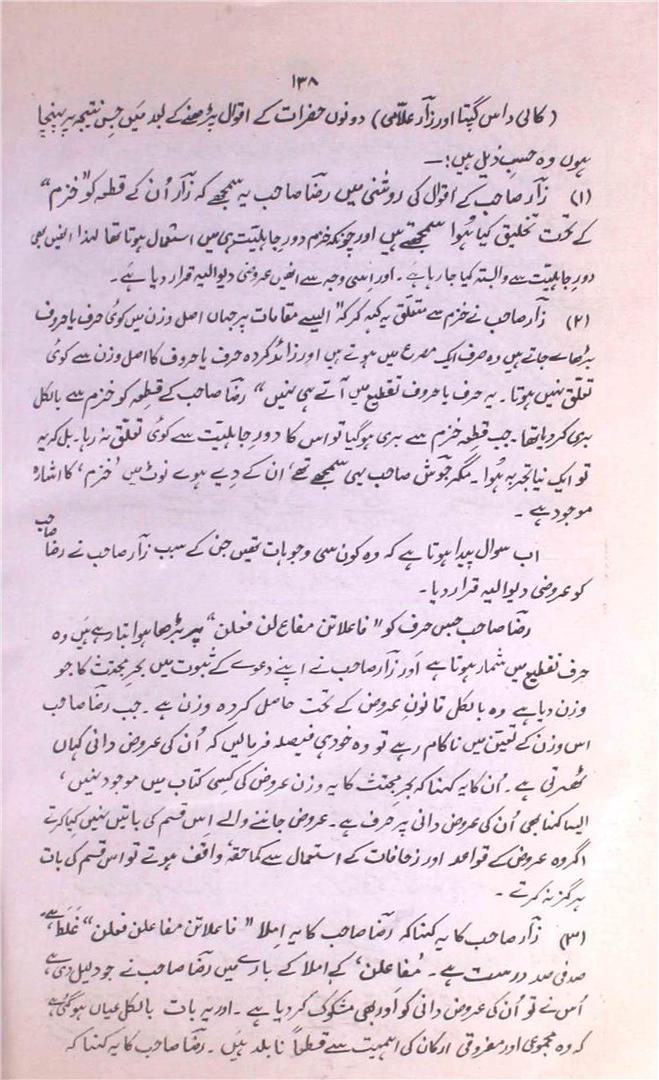 ۱۳۸
(کالی داس گپتا اور زارؔ علامی) دونوں حضرات کے اقوال پڑھنے کے بعد میں جس نتیجہ پر پہنچا
ہوں وہ حسبِ ذیل ہیں:—
(۱) زارؔ صاحب کے اقوال کی روشنی میں رضاؔ صاحب یہ سمجھے کہ زارؔ اُن کے قطعہ کو "خزم"
کے تحت تخلیق کیا ہُوا سمجھتے ہیں اور چونکہ خزم دورِ جاہلیت ہی میں استعمال ہوتا تھا لہٰذا انھیں بھی
دورِ جاہلیت سے وابستہ کیا جا رہا ہے۔ اور اِسی وجہ سے انھیں عروضی دیوالیہ قرار دیا ہے۔
(۲) زارؔ صاحب نے خزم سے متعلق یہ کہہ کر کہ "ایسے مقامات پر جہاں اصل وزن میں کوئی حرف یا حروف
بڑھائے جاتے ہیں وہ صرف ایک مصرع میں ہوتے ہیں اور زائد کردہ حرف یا حروف کا اصل وزن سے کوئی
تعلق نہیں ہوتا۔ یہ حرف یا حروف تقطیع میں آتے ہی نہیں" رضاؔ صاحب کے قطعہ کو خزم سے بالکل
بری کر دیا تھا۔ جب قطعہ خزم سے بری ہو گیا تو اس کا دورِ جاہلیت سے کوئی تعلق نہ رہا۔ بل کہ یہ
تو ایک نیا تجربہ ہُوا۔ مگر جوشؔ صاحب یہی سمجھے تھے، ان کے دیے ہوے نوٹ میں 'خزم' کا اشارہ
موجود ہے۔
اب سوال پیدا ہوتا ہے کہ وہ کون سی وجوہات تھیں جن کے سبب زارؔ صاحب نے رضاؔ صاحب
کو عروضی دیوالیہ قرار دیا۔
رضاؔ صاحب جس حرف کو "فاعلاتن مفاع لن فعلن" پر بڑھا ہوا بتا رہے ہیں وہ
حرف تقطیع میں شمار ہوتا ہے اور زارؔ صاحب نے اپنے دعوے کے ثبوت میں بحر مجتث کا جو
وزن دیا ہے وہ بالکل قانونِ عروض کے تحت حاصل کردہ وزن ہے۔ جب رضاؔ صاحب
اس وزن کے تعین میں ناکام رہے تو وہ خود ہی فیصلہ فرمالیں کہ اُن کی عروض دانی کہاں
ٹھہرتی ہے۔ اُن کا یہ کہنا کہ بحرِ مجتث کا یہ وزن عروض کی کسی کتاب میں موجود نہیں،
ایسا کہنا بھی اُن کی عروض دانی پر حرف ہے۔ عروض جاننے والے اِس قسم کی باتیں نہیں کیا کرتے
اگر وہ عروض کے قواعد اور زحافات کے استعمال سے کماحقہٗ واقف ہوتے تو اس قسم کی بات
ہرگز نہ کرتے۔
(۳) زارؔ صاحب کا یہ کہنا کہ رضاؔ صاحب کا یہ اِملا "فاعلاتن مفاعلن فعلن" غَلَط ہے،
صد فی صد درست ہے۔ 'مفاعلن' کے املا کے بارے میں رضاؔ صاحب نے جو دلیل دی ہے
اُس نے تو اُن کی عروض دانی کو اَور بھی مشکوک کر دیا ہے۔ اور یہ بات بالکل عیاں ہو گئی ہے
کہ وہ مجموعی اور مفروقی ارکان کی اہمیت سے قطعاً نابلد ہیں۔ رضاؔ صاحب کا یہ کہنا کہ